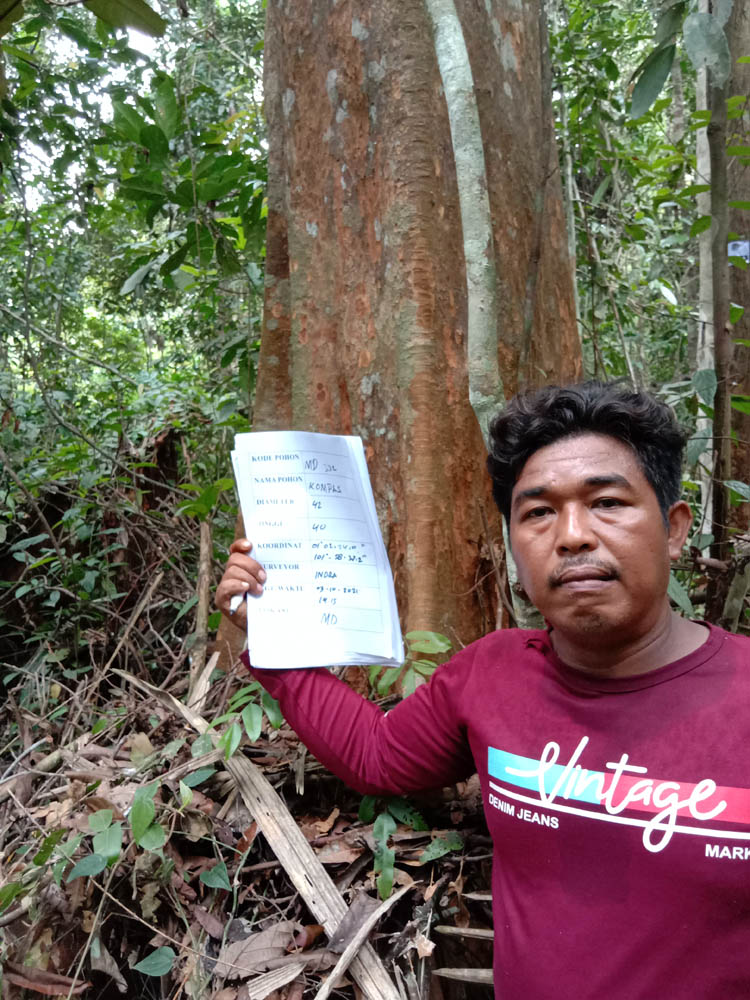 KODE POHON MD
NAMA POHON KOMPAS
DIAMETER 42
INGGI 40
KOORDINAT 01° 02. 24.0"
101°. 28. 32.2"
URVEYOR INDRA
WAKTU 03-10-2021
14.15
MD
Vintage
DENIM JEANS
MARK